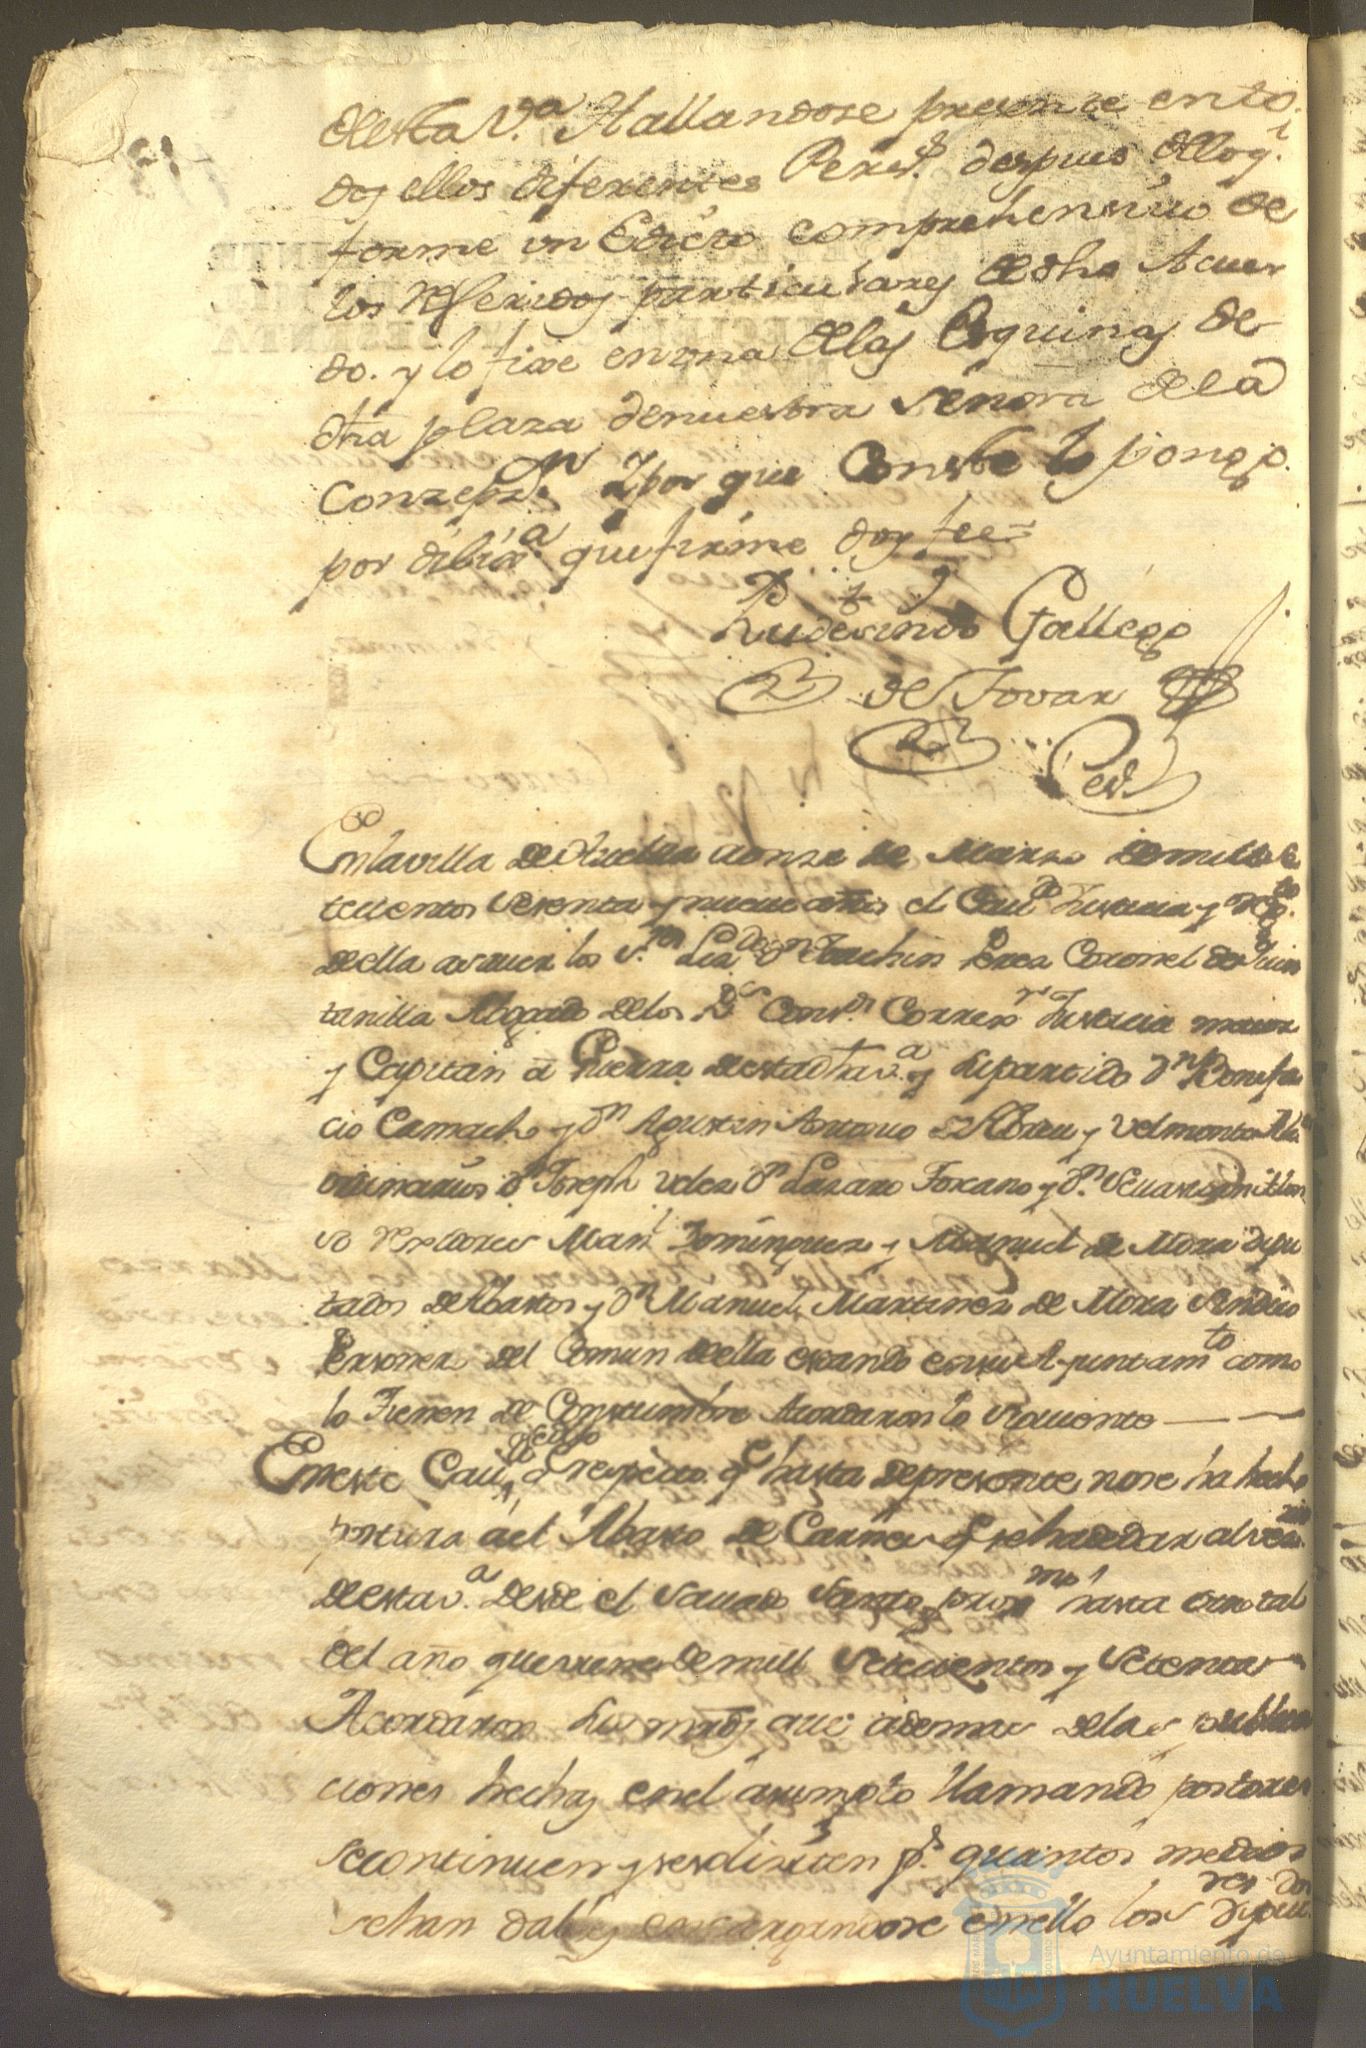 deesta V.a Hallandose presente ento
dos ellos diferentes Pers.s despues delloq.l
forme un Edicto comprehensivo de
los referidos particulares de dho Acuer
do. y lo fixe en una delas Esquinas de
dha plaza denuestra señora dela
Conzepz.n Y por que Conste lo pongo
por dilixa.a que firme doy fee=
Rudesindo Gallego
de Tovar
Es.no
Enlavilla de Huelva aonze de Marzo demill se
tecientos sesenta y nueve años el Cau.do Justicia y Reg.to
deella asaver los S.res Liz.do d.n Joachin Perea Coronel de Quin
tanilla Abogado delos R.s Cons.s Correx.r Justicia maior
y Capitan a Guerra de esta dha v.a y su partido d.n Bonifa
cio Camacho y d.n Agustin Antonio de Abreu y Velmonte Alc.s
ordinarios d.n Joseph Velez d.n Lazaro Forcano y d.n Sevastian
Rexidores Man.l Dominguez y Manuel de Mora dipu
tados de Abastos y d.n Manuel Martinez de Mora Sindico
Personero del Comun deella estando en su Ayuntam.to como
lo tienen de Constumbre Acordaron lo siguiente
Eneste Cau.do respecto q.e hasta depresente nose ha hecho
postura ael Abasto de Carnes q se ha de dar al vez.no
deesta v.a desde el Savado Santo prox.mo hasta otro tal
del año que viene demill Setecientos y Setenta
Acordaron sus mrds que ademas delas publica
ciones hechas enel asumpto llamando postores
secontinuen y se soliziten p.r quantos medios
sehan dable encargandose enello los S.res dos Dipu
Ayuntamiento de
HUELVA